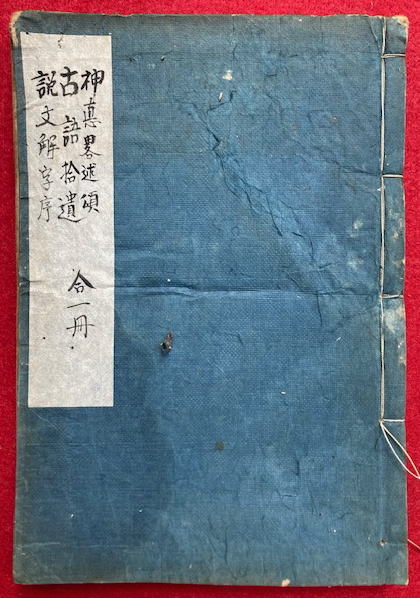 神悳畧述頌
古語拾遺
説文解字序
合一冊